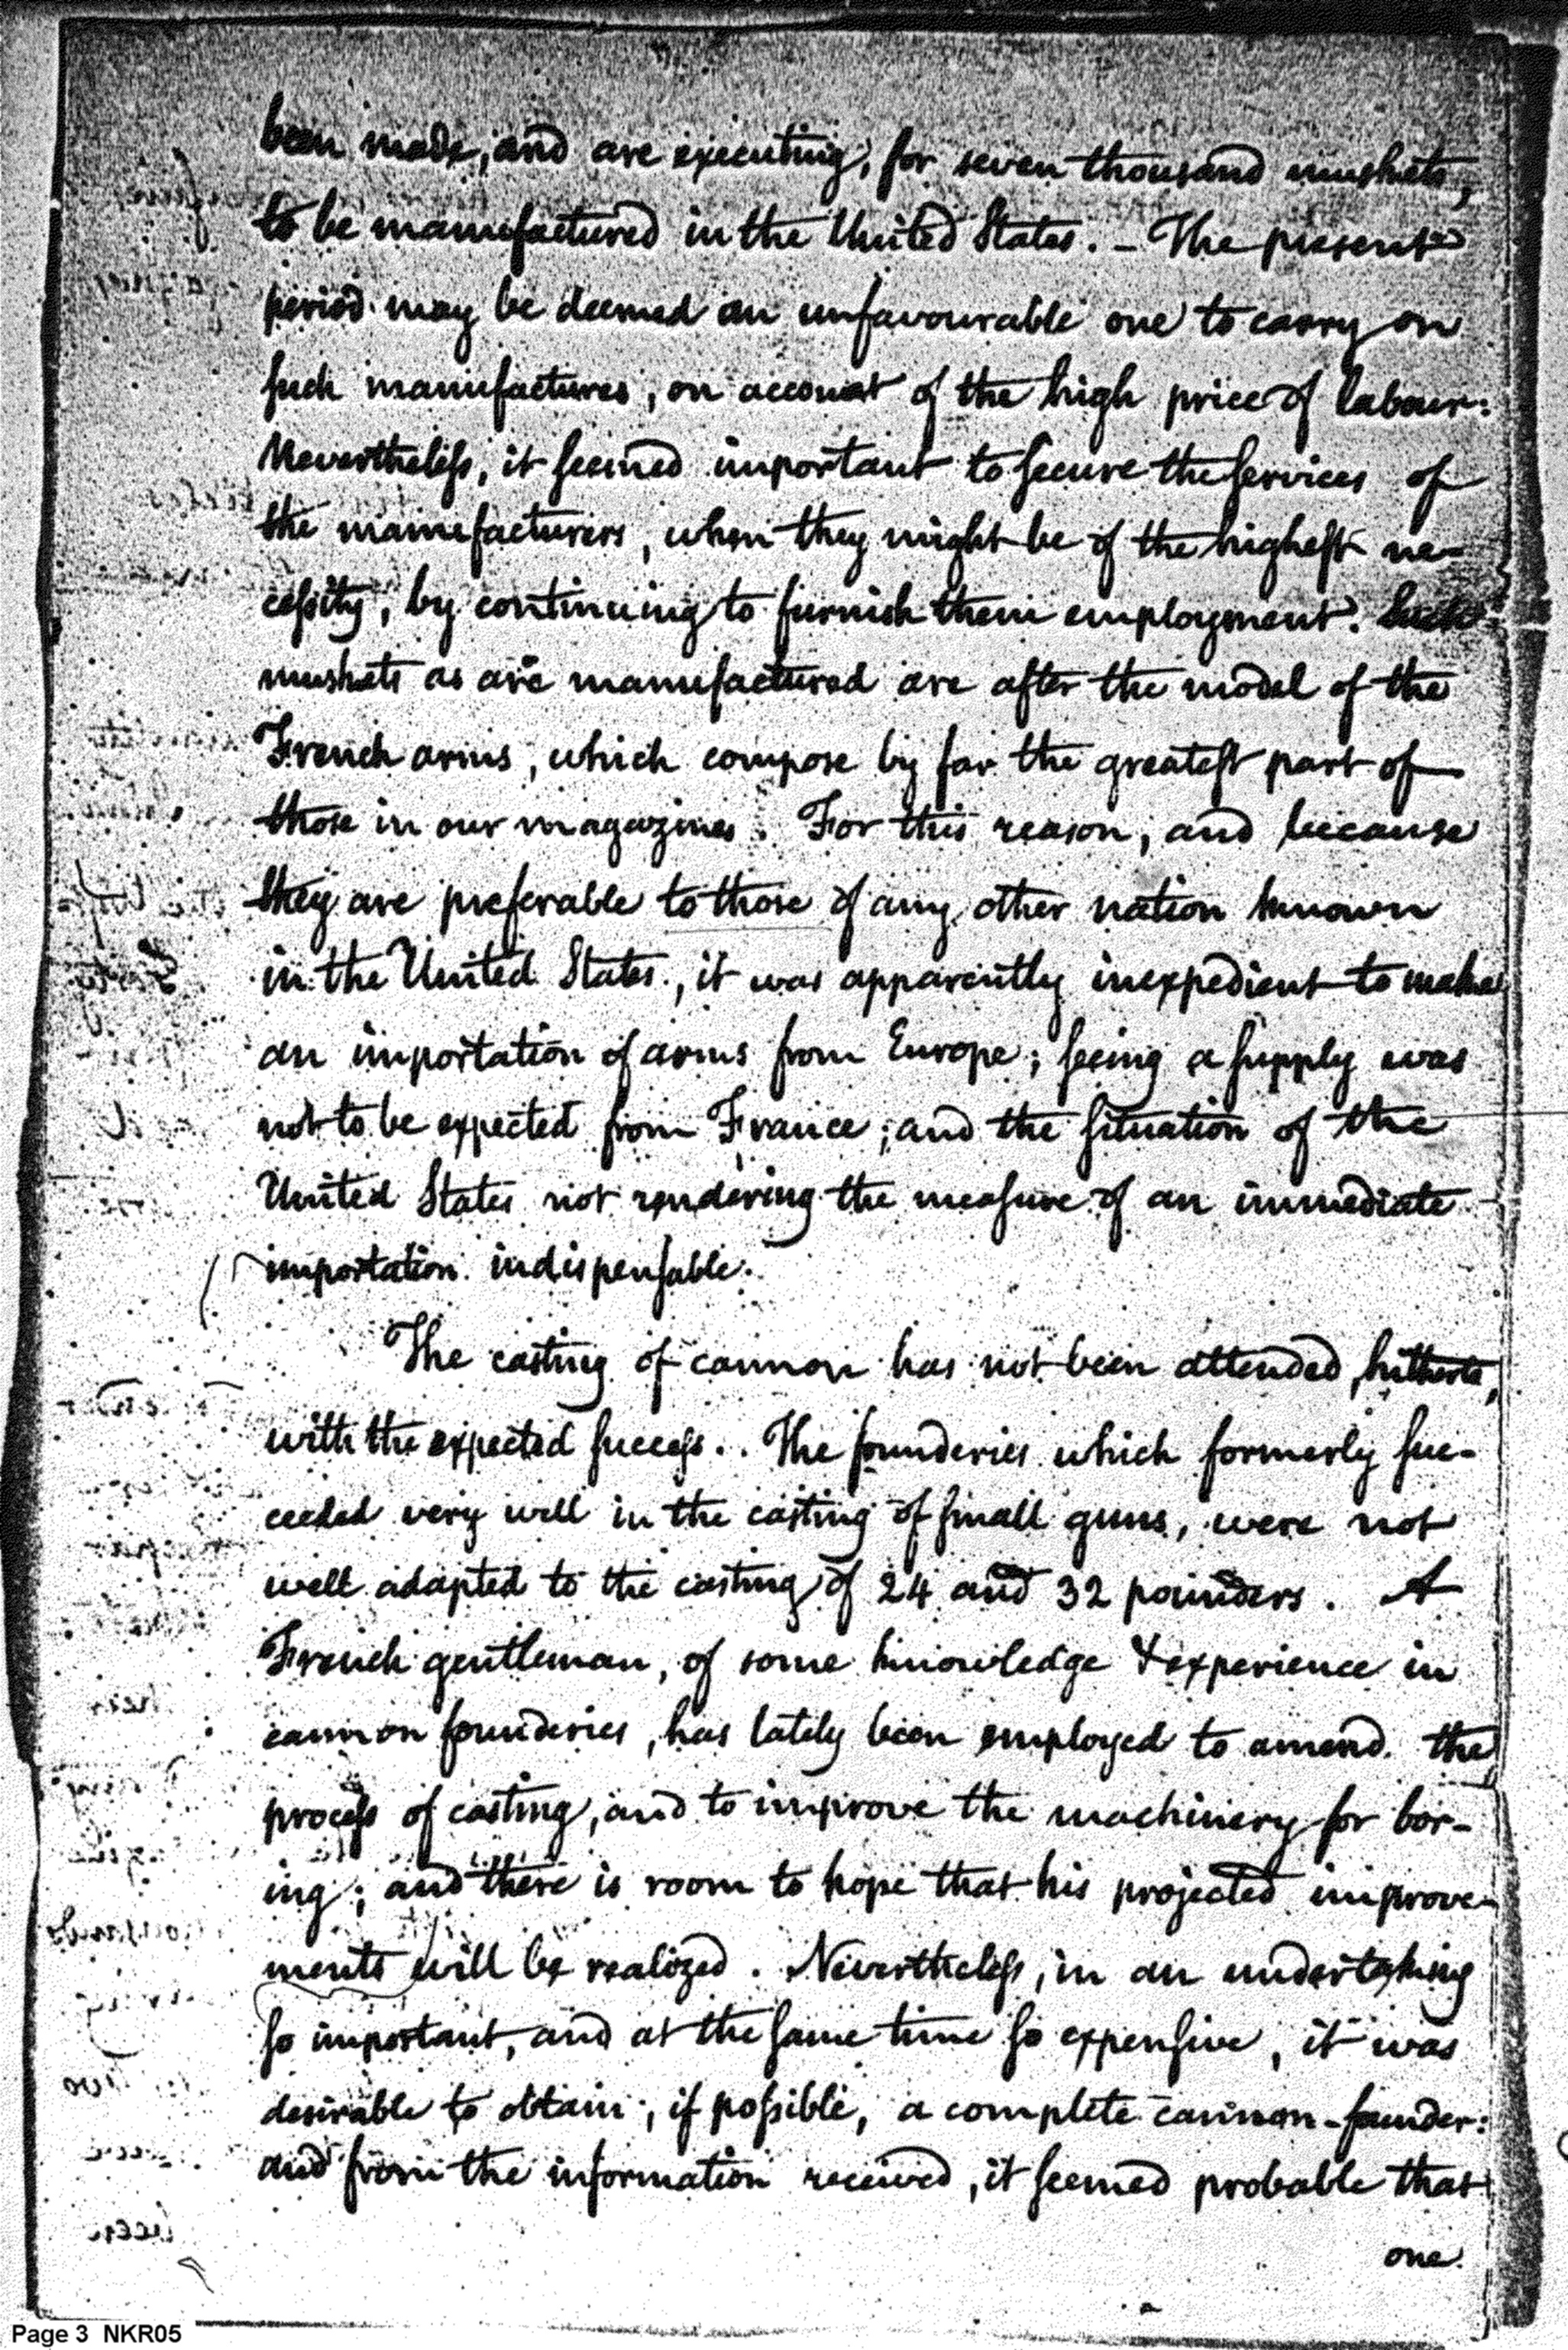 been made, and are executing, for seven thousand muskets,
to be manufactured in the United States. – The present
period may be deemed an unfavourable one to carry on
such manufactures, on account of the high price of labour:
Nevertheless, it seemed important to secure the services of
the manufacturers, when they might be of the highest ne-
cessity, by continuing to furnish them employment. Such
muskets as are manufactured are after the model of the
French arms, which compose by far the greatest part of
those in our magazines. For this reason, and because
they are preferable to those of any other nation known
in the United States, it was apparently inexpedient to make
an importation of arms from Europe; seeing a supply was
not to be expected from France; and the situation of the
United States not rendering the measure of an immediate
importation indispensable.
The casting of cannon has not been attended, hitherto,
with the expected success. The founderies which formerly suc-
ceeded very well in the casting of small guns, were not
well adapted to the casting of 24 and 32 pounders. A
French gentleman, of some knowledge & experience in
cannon founderies, has lately been employed to amend the
process of casting, and to improve the machinery for bor-
ing; and there is room to hope that his projected improve-
ments will be realized. Nevertheless, in an undertaking
so important, and at the same time so expensive, it was
desirable to obtain, if possible, a complete cannon-founder:
and from the information received, it seemed probable that
one
Page 3 NKR05